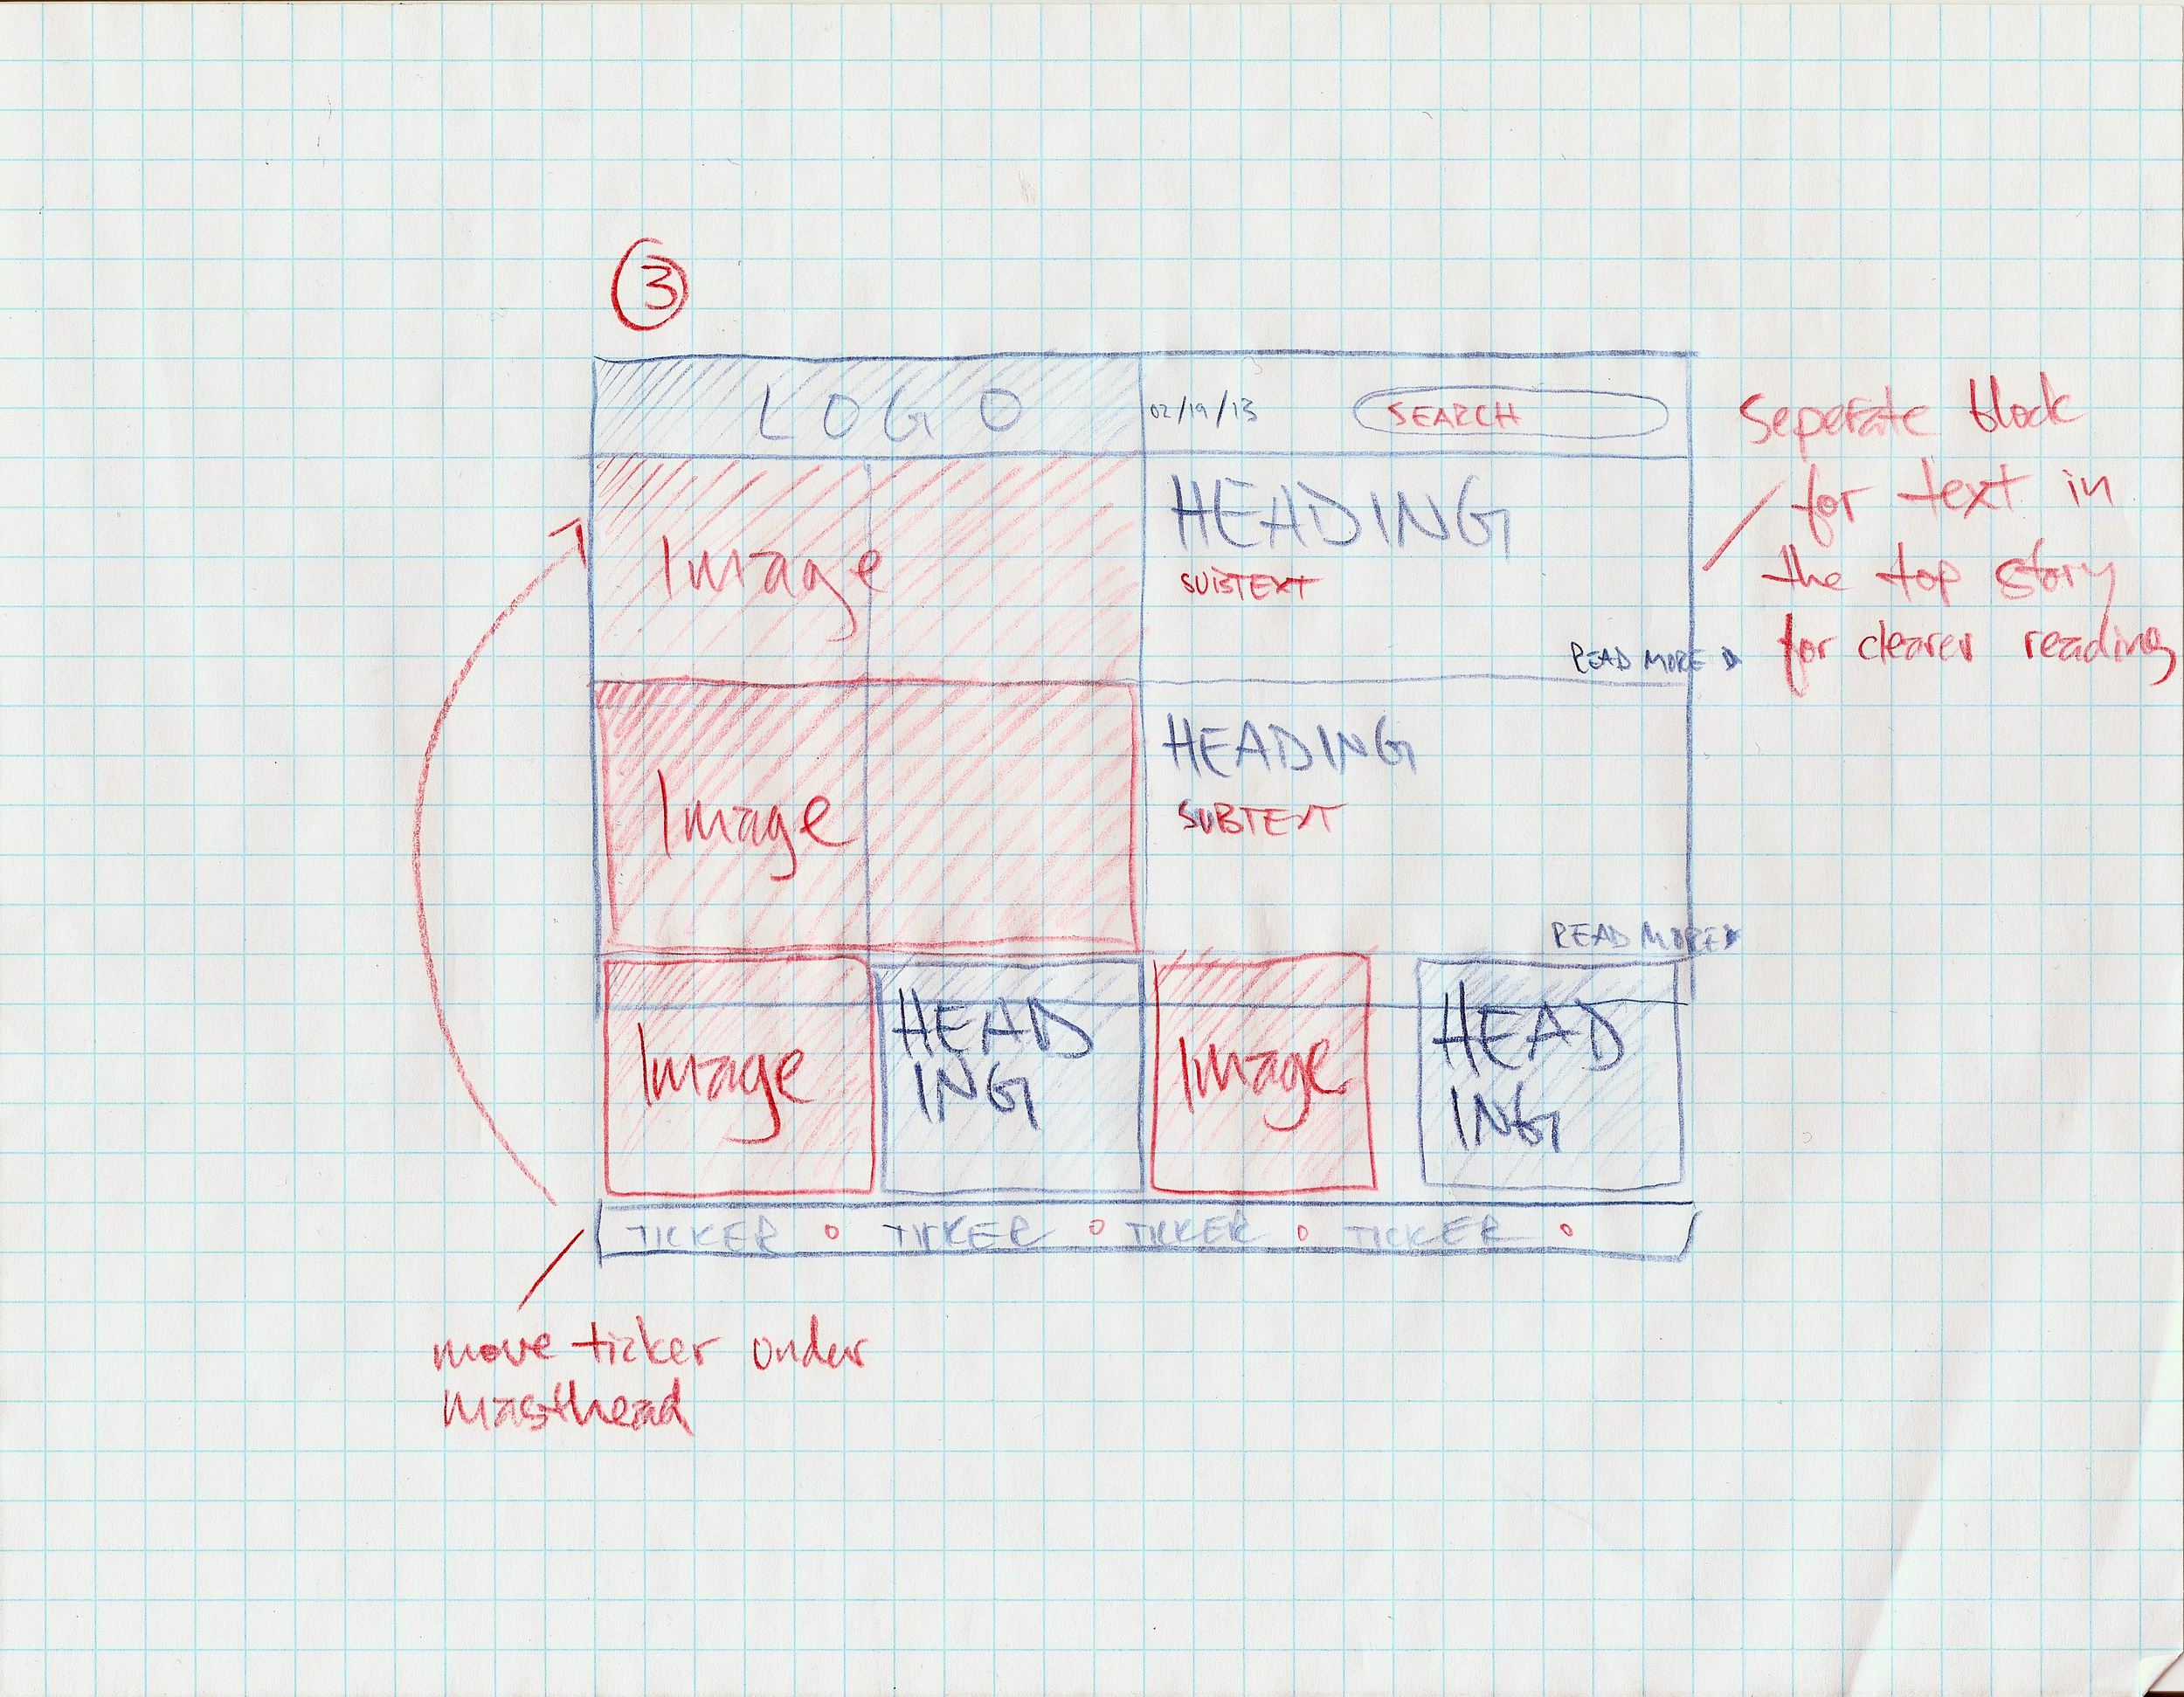 3
LOGO
02/19/13
SEARCH
Image
HEADING
SUBTEXT
READ MORE
Seperate block
for text in
the top story
for clearer reading
Image
HEADING
SUBTEXT
READ MORE
Image
HEAD
ING
Image
HEAD
ING
TICKER o TICKER o TICKER o TICKER o
move ticker under
masthead